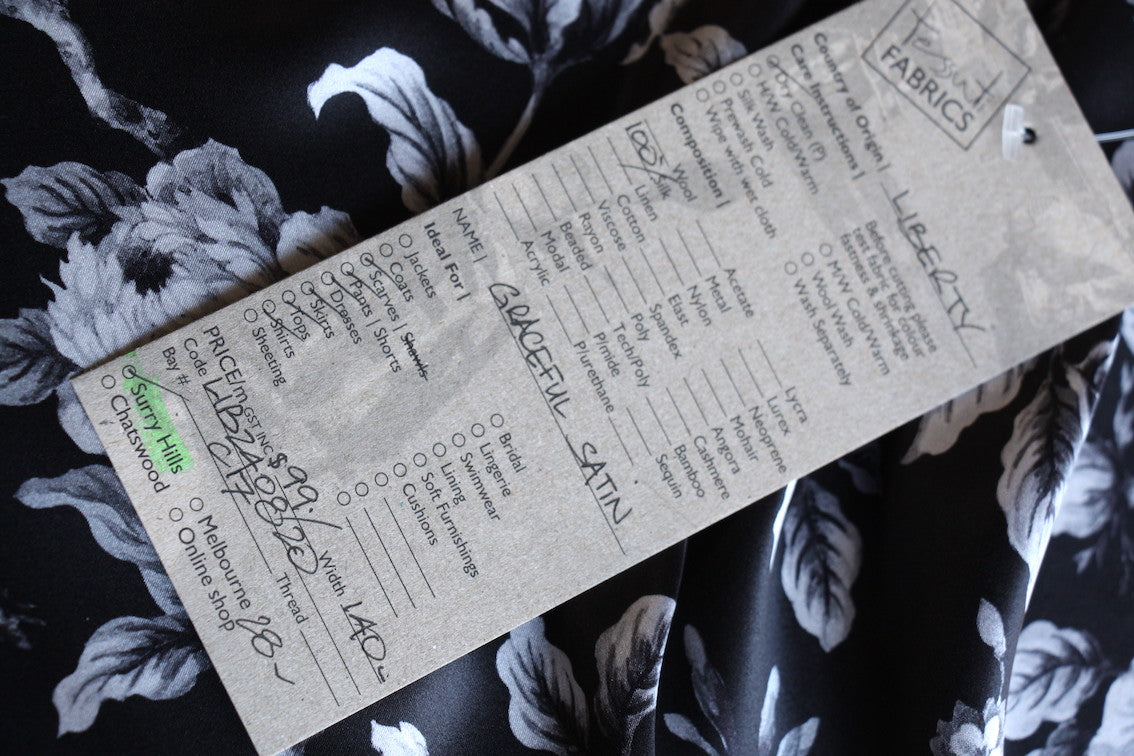 Tessuti
FABRICS
Country of Origin | LIBERTY
Care Instructions |
Before cutting please
test fabric for colour
fastness & shrinkage
Dry Clean (P)
H/W Cold/Warm
M/W Cold/Warm
Silk Wash
Wool Wash
Prewash Cold
Wash Separately
Wipe with wet cloth
Composition |
Wool
Acetate
Lycra
100% Silk
Metal
Lurex
Linen
Nylon
Neoprene
Cotton
Elast
Mohair
Viscose
Spandex
Angora
Rayon
Poly
Cashmere
Beaded
Tech/Poly
Bamboo
Modal
Pimide
Sequin
Acrylic
Plurethane
NAME | GRACEFUL SATIN
Ideal For |
Jackets
Bridal
Coats
Lingerie
Scarves | Shawls
Swimwear
Pants | Shorts
Lining
Dresses
Soft Furnishings
Skirts
Cushions
Tops
Shirts
Sheeting
PRICE/m GST INC $ 99./ Width 140
Code LIB24708/20
Bay # C17 Thread
Surry Hills
Melbourne 28
Chatswood
Online shop